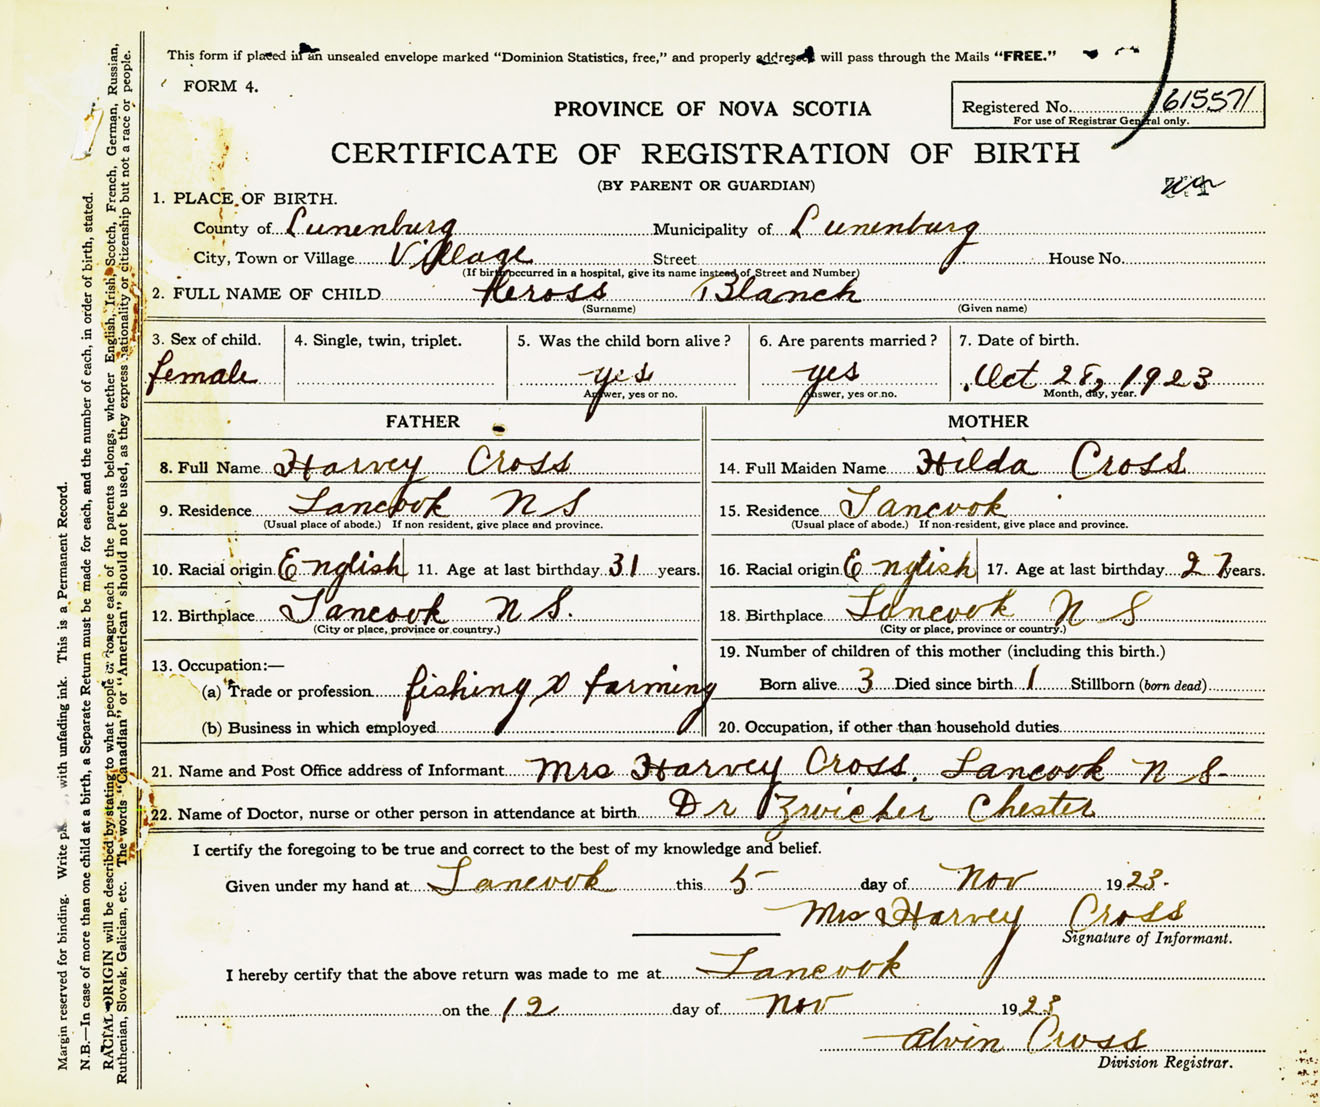 This form if placed in an unsealed envelope marked "Dominion Statistics, free," and properly addressed will pass through the Mails "FREE."
FORM 4.
PROVINCE OF NOVA SCOTIA
Registered No. 615571
For use of Registrar General only.
CERTIFICATE OF REGISTRATION OF BIRTH
(BY PARENT OR GUARDIAN)
1. PLACE OF BIRTH.
County of Lunenburg Municipality of Lunenburg
City, Town or Village Village Street House No.
(If birth occurred in a hospital, give its name instead of Street and Number)
2. FULL NAME OF CHILD Blanch
(Surname) (Given name)
3. Sex of child. 4. Single, twin, triplet. 5. Was the child born alive? 6. Are parents married? 7. Date of birth.
female yes yes Oct 1923
Answer, yes or no. Answer, yes or no. Month, day, year.
FATHER MOTHER
8. Full Name Harvey Cross 14. Full Maiden Name Hilda Cross
9. Residence Tancook N S 15. Residence Tancook
(Usual place of abode.) If non resident, give place and province. (Usual place of abode.) If non-resident, give place and province.
10. Racial origin English 11. Age at last birthday 31 years. 16. Racial origin English 17. Age at last birthday 27 years.
12. Birthplace Tancook N S. 18. Birthplace Tancook N S
(City or place, province or country.) (City or place, province or country.)
13. Occupation:— 19. Number of children of this mother (including this birth.)
(a) Trade or profession fishing & farming Born alive 3 Died since birth 1 Stillborn (born dead)
(b) Business in which employed 20. Occupation, if other than household duties
21. Name and Post Office address of Informant Mrs Harvey Cross. Tancook N S-
22. Name of Doctor, nurse or other person in attendance at birth Dr Zwicker Chester
I certify the foregoing to be true and correct to the best of my knowledge and belief.
Given under my hand at Tancook this 5 day of Nov 1923.
Mrs Harvey Cross
Signature of Informant.
I hereby certify that the above return was made to me at Tancook
on the 12 day of Nov 1923
Alvin Cross
Division Registrar.
Margin reserved for binding. Write with unfading ink. This is a Permanent Record.
N.B.—In case of more than one child at a birth, a Separate Return must be made for each, and the number of each, in order of birth, stated.
RACIAL ORIGIN will be described by stating to what people or tongue each of the parents belongs, whether English, Irish, Scotch, French, German, Russian,
Ruthenian, Slovak, Galician, etc. The words "Canadian" or "American" should not be used, as they express nationality or citizenship but not a race or people.